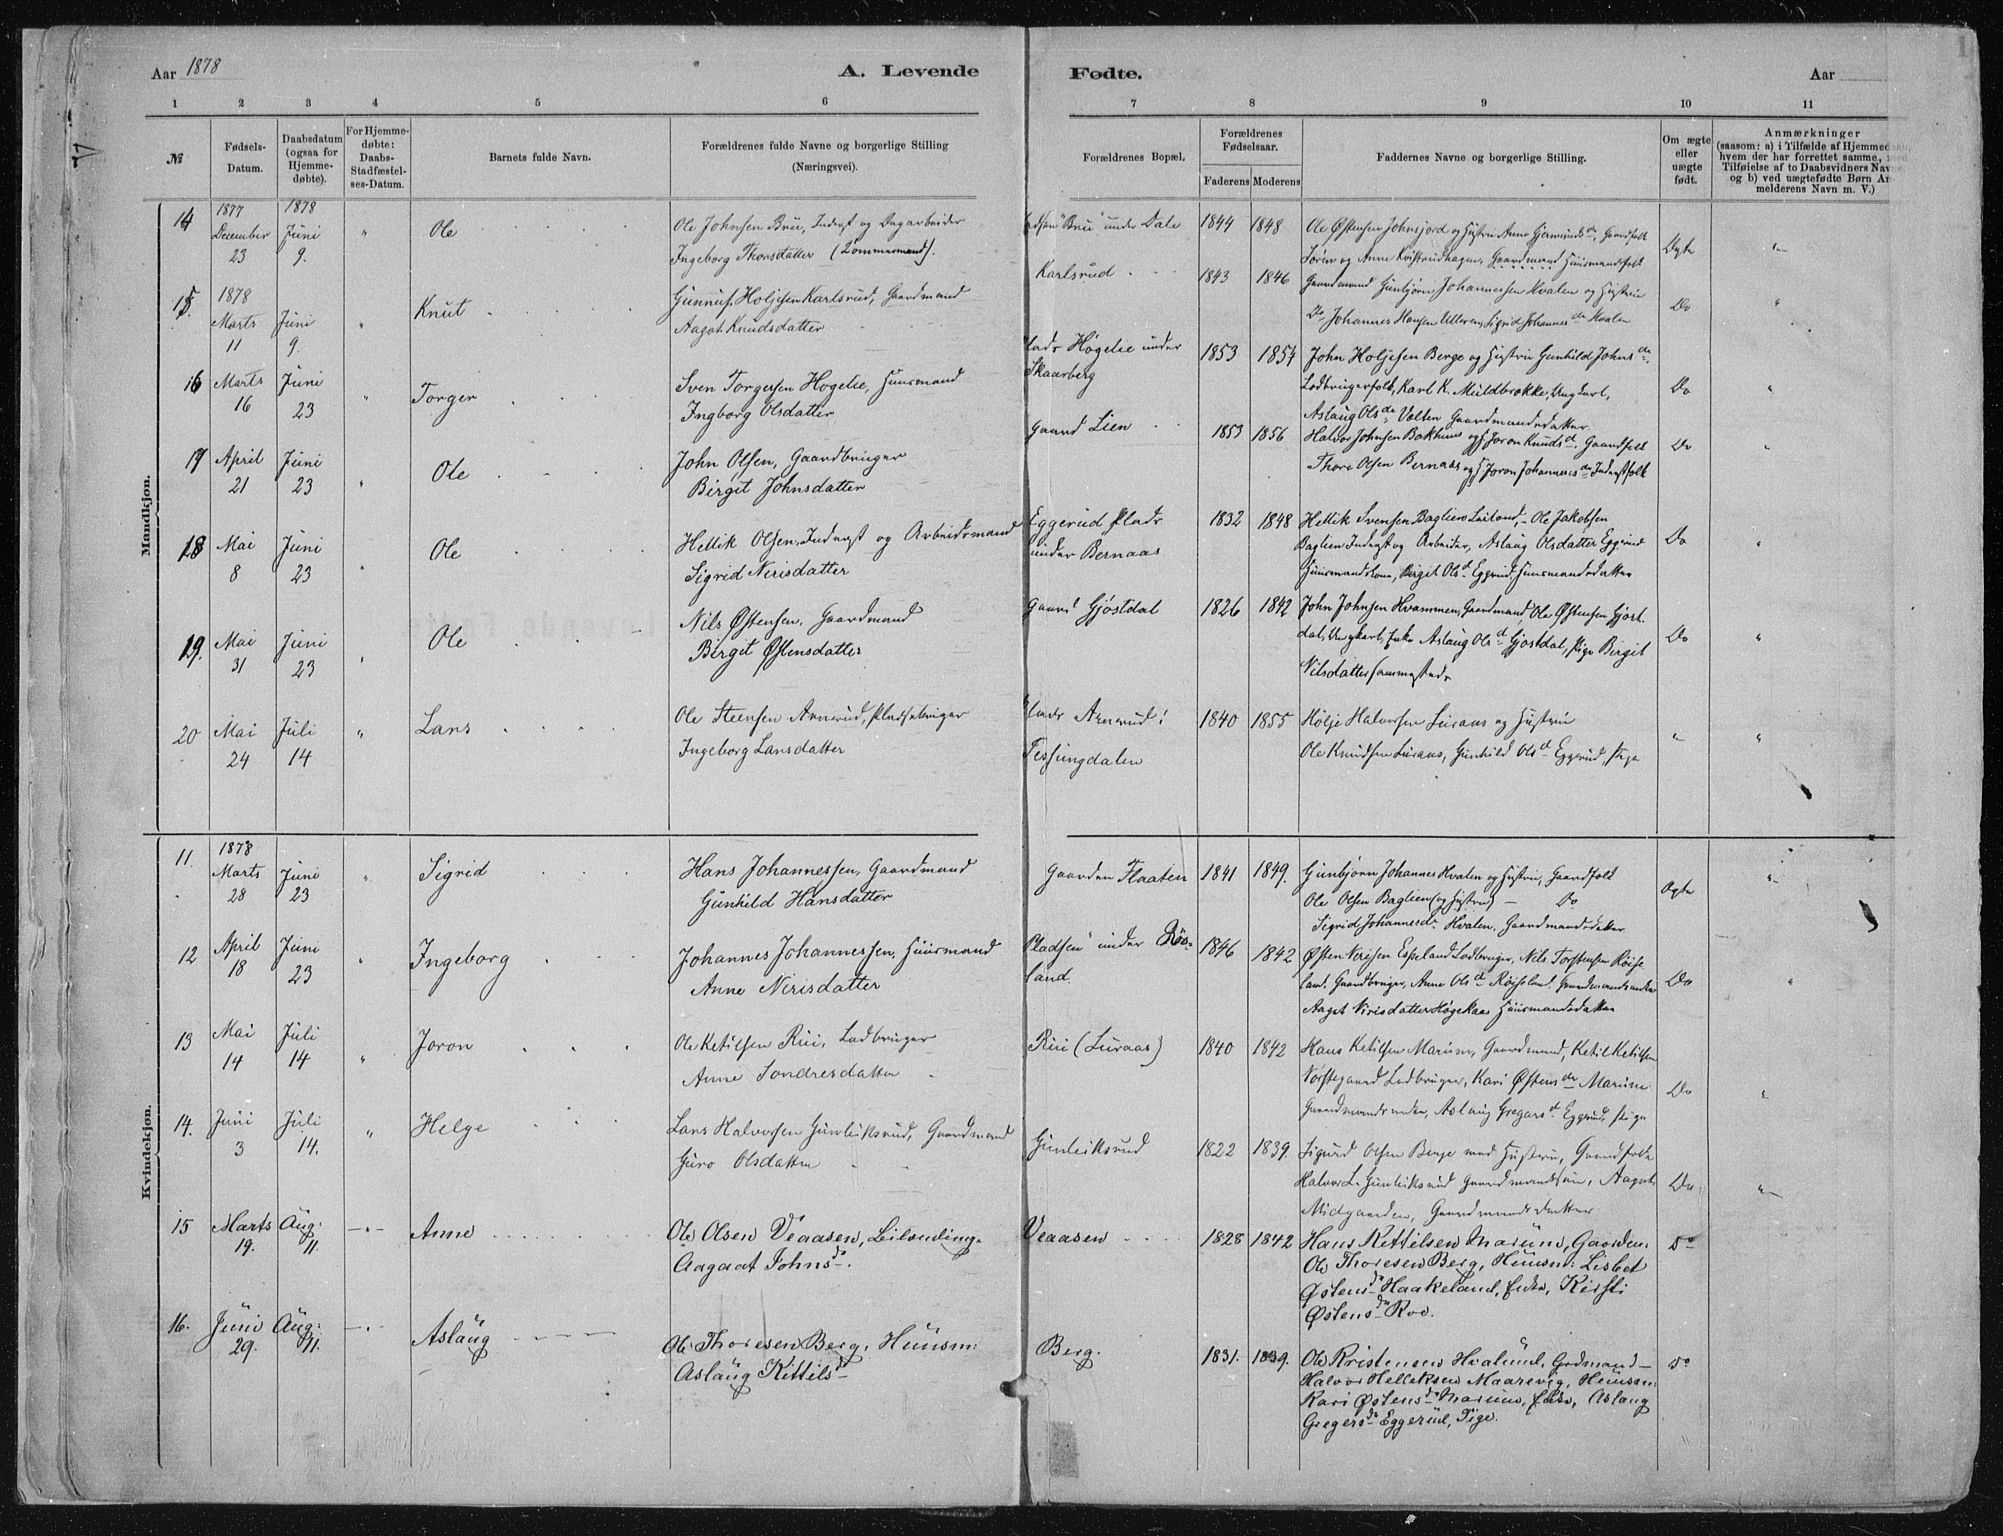 Aar 1878
A. Levende
Fødte.
Aar
1 2 3 4 5 6 7 8 9 10 11
№
Fødsels-
Datum.
Daabsdatum
(ogsaa for
Hjemme-
døbte).
For Hjemme-
døbte:
Daabs-
Stadfæstel-
ses-Datum.
Barnets fulde Navn.
Forældrenes fulde Navne og borgerlige Stilling
(Næringsvei).
Forældrenes Bopæl.
Forældrenes
Fødselsaar.
Faderens Moderens
Faddernes Navne og borgerlige Stilling.
Om ægte
eller
uægte
født.
Anmærkninger
(saasom: a) i Tilfælde af Hjemmedaab,
hvem der har forrettet samme, med
Tilføielse af to Daabsvidners Navne
og b) ved uægtefødte Børn An
melderens Navn m. V.)
Mandkjøn.
14 1877 December 23 1878 Juni 9. " Ole
Ole Johnsen Bru, Inderst og Dagarbeider
Ingeborg Thorsdatter (Tømmermand).
"Bru" under Dale 1844 1848
Ole Østensen Johnsjord og Hustru Anne Gjermunds d., Gaardfolk
Søren og Anne Kvistrudhagen, Gaardmand Huusmandsfolk
Ægte "
15. 1878 Marts 11 Juni 9. " Knut
Gunnuf Holjesen Karlsrud, Gaardmand
Aagot Knudsdatter
Karlsrud 1843 1846
Gaardmand Gunbjørn Johannessen Hvalen og Hustru
Do Johannes Hansen Ulleren, Sigrid Johannes da Hvalen
Do "
16 Marts 16 Juni 23 " Torger
Sven Torgersen Høgelie, Huusmand
Ingborg Olsdatter
Plads Høgelie under
Skaarberg
1853 1854
John Holjesen Berge og Hustru Gunhild Johns da,
Lodbrugerfolk, Karl K. Muldbrokke, Ungkarl,
Aslaug Ols da Valten Gaardmandsdatter
Do "
17 April 21 Juni 23 " Ole
John Olsen, Gaardbruger
Birgit Johnsdatter
Gaard Lien 1853 1856
Halvor Johnsen Bakhuus og H Joron Knuds d. Gaardfolk
Thore Olsen Bernaas og H Joron Johannes da Inderstfolk
Do "
18 Mai 8 Juni 23 " Ole
Hellik Olsen, Inderst og Arbeidsmand
Sigrid Nirisdatter
Eggerud Plads
under Bernaas
1832 1848
Hellik Svensen Baglien, Ole Jakobsen
Baglien Inderst og Arbeider, Aslaug Olsdatter Eggerud
Huusmandskone, Birgit Ols d. Eggerud, Huusmandsdatter
Do "
19. Mai 31 Juni 23 " Ole
Nils Østensen, Gaardmand
Birgit Østensdatter
Gaard Gjøstdal 1826 1842
John Johnsen Hvammen, Gaardmand, Ole Østensen Gjøst-
dal, Ungkarl, Enke Aslaug Ols d Gjøstdal, Pige Birgit
Nilsdatter sammesteds
Do "
20 Mai 24 Juli 14 " Lars
Ole Steensen Arnerud, Pladsebruger
Ingeborg Larsdatter
Plads Arnerud i
Tessungdalen
1840 1855
Holje Halvorsen Luraas og Hustru
Ole Knudsen Luraas, Gunhild Ols d Eggerud, Pige
" "
Kvindekjøn.
11. 1878 Marts 28 Juni 23 " Sigrid
Hans Johannessen, Gaardmand
Gunhild Hansdatter
Gaarden Flaaten 1841 1849.
Gunbjørn Johannes Hvalen og Hustru, Gaardfolk
Ole Olsen Baglien (og Hustru) – Do
Sigrid Johannesda. Hvalen, Gaardmandsdatter
Ægte "
12 April 18 Juni 23 " Ingeborg
Johannes Johannessen, Huusmand
Anne Nirisdatter
Pladsen under Røis-
land.
1846 1842
Østen Nirisen Espeland Lodbruger, Nils Torstensen Røise
land, Gaardbruger, Anne Ols d. Røisland, Gaardmandsenke
Aagot Nirisdatter Høgekaas Huusmandsdatter
Do "
13 Mai 14 Juli 14 " Joron
Ole Ketilsen Rui, Lodbruger
Anne Sondresdatter
Rui (Luraas) 1840 1842
Hans Ketilsen Marum, Gaardmand, Ketil Ketilsen
Norstegaard Lodbruger, Kari Østens da Marum
Gaardmandsenke, Aslaug Gregars d. Eggerud, Pige
Do "
14. Juni 3 Juli 14. " Helge
Lars Halvorsen Gunleiksrud, Gaardmand
Guro Olsdatter
Gunleiksrud 1822 1839.
Sigurd Olsen Berge med Hustru, Gaardfolk
Halvor L. Gunleiksrud Gaardmandssøn, Aagot
Midgaarden, Gaardmandsdatter
Do "
15 Marts 19. Aug: 11. –"– Anne
Ole Olsen Veaasen, Leilending.
Aagaat Johnsd.
Veaasen 1828 1842
Hans Kettilsen Marum, Gaarden:
Ole Thoresen Berg, Huusm: Lisbet
Østensda Haakeland, Enke, Kirsti
Østensda Roe.
Do
16. Juni 29. Aug: 11. –"– Aslaug
Ole Thoresen Berg, Huusm:
Aslaug Kittilsd
Berg. 1831. 1839.
Ole Kristensen Hvalund, Grdmand
Halvor Helleksen Maarevig, Huusm:
Kari Østensda Marum, Enke, Aslaug
Gregersda Eggerud, Pige.
Do